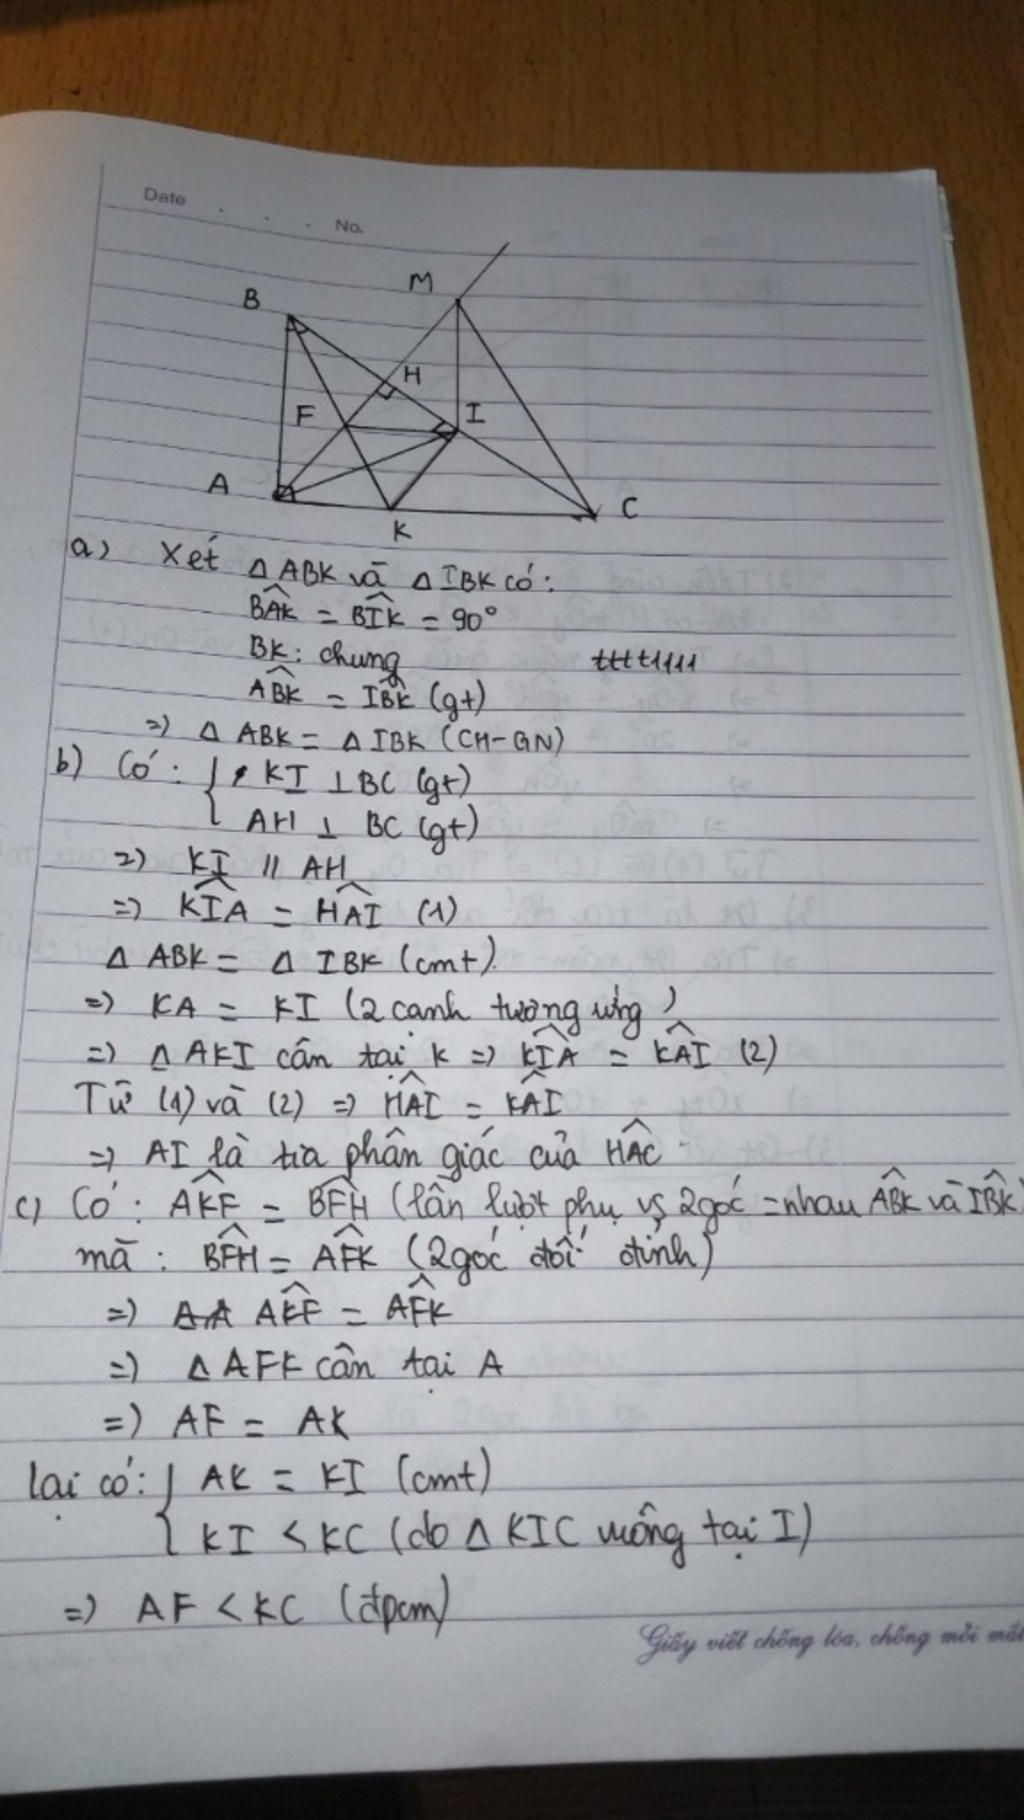 Date . . . No.
M
B
H
F
I
A
C
K
a) Xét Δ ABK và Δ IBK có:
BÂK = BÎK = 90°
BK: chung
AB̂K = IB̂K (gt)
=) Δ ABK = Δ IBK (CH-GN)
b) Có: { KI ⊥ BC (gt)
AH ⊥ BC (gt)
=) KI // AH
=) KÎA = HÂI (1)
Δ ABK = Δ IBK (cmt).
=) KA = KI (2 cạnh tương ứng)
=) Δ AKI cân tại K =) KÎA = KÂI (2)
Từ (1) và (2) =) HÂI = KÂI
=) AI là tia phân giác của HÂC
c) Có: AK̂F = BF̂H (lần lượt phụ vs 2 góc = nhau AB̂K và IB̂K)
mà: BF̂H = AF̂K (2 góc đối đỉnh)
=) AK̂F = AF̂K
=) Δ AFK cân tại A
=) AF = AK
lại có: { AK = KI (cmt)
KI < KC (do Δ KIC vuông tại I)
=) AF < KC (đpcm)
Giấy viết chống lóa, chống mỏi mắt